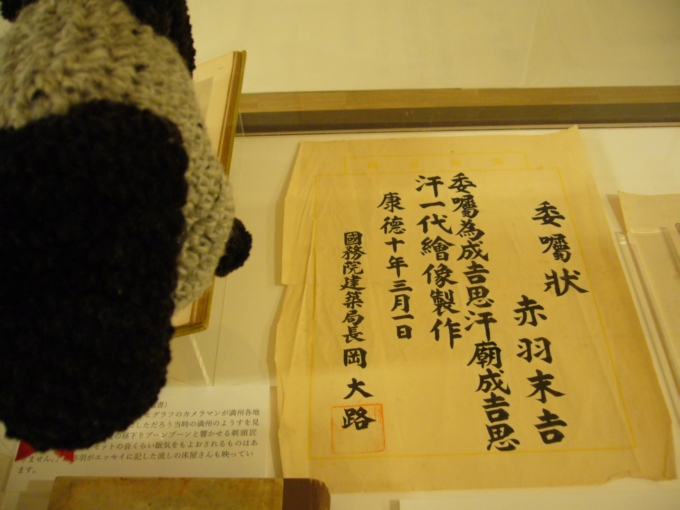 委嘱状
赤羽末吉
委囑為成吉思汗廟成吉思
汗一代繪像製作
康德十年三月一日
國務院建築局長 岡大路
グラフのカメラマンが満州各地
しただろう当時の満州のようすを見
の坊下りブーンブーンと響かせる剃頭匠
ットの音くらい眠気をもよおされるものはあ
ません。
羽がエッセイに記した流しの床屋さんも映ってい
ます。